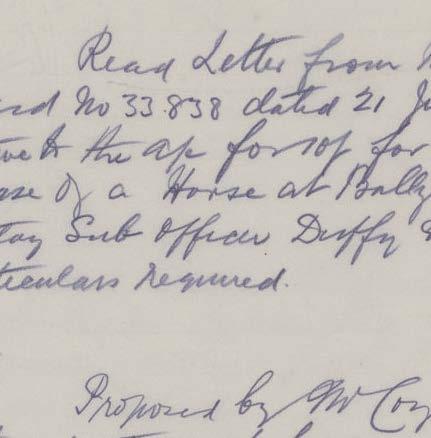 Read Letter from
No 33.838 dated 21
the ap for 10/- for
of a Horse at Bally
Sub Officer Duffy
ticulars required.
Proposed by Mr Coy